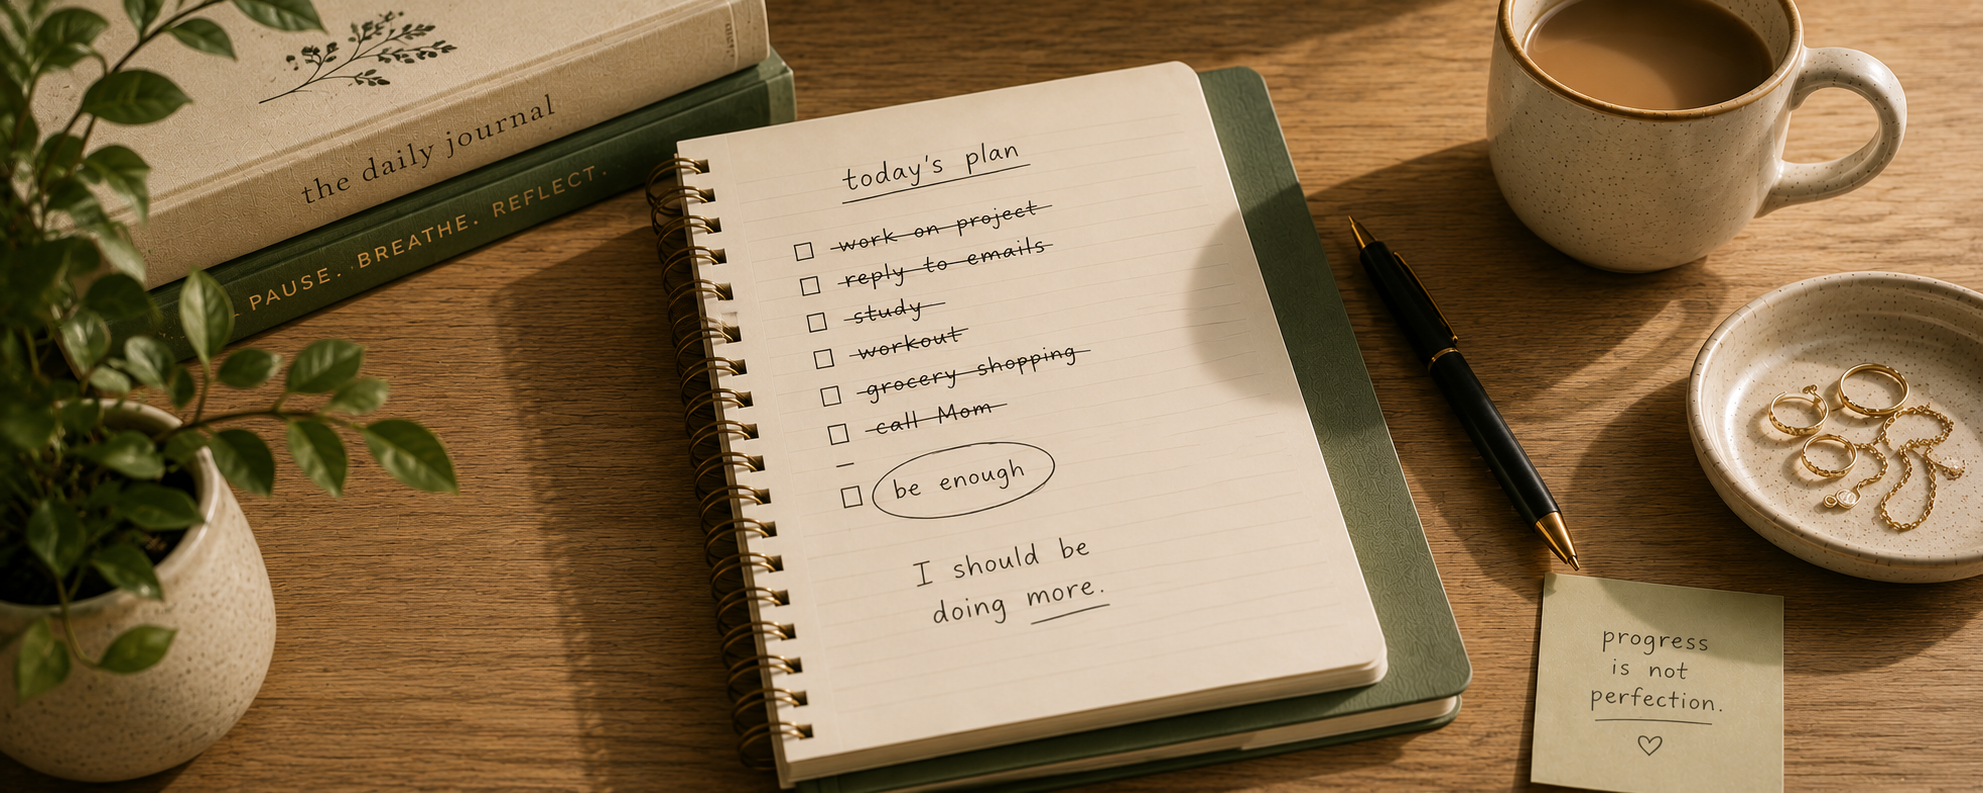 the daily journal
PAUSE. BREATHE. REFLECT.
today's plan
work on project
reply to emails
study
workout
grocery shopping
call Mom
be enough
I should be
doing more.
progress
is not
perfection.